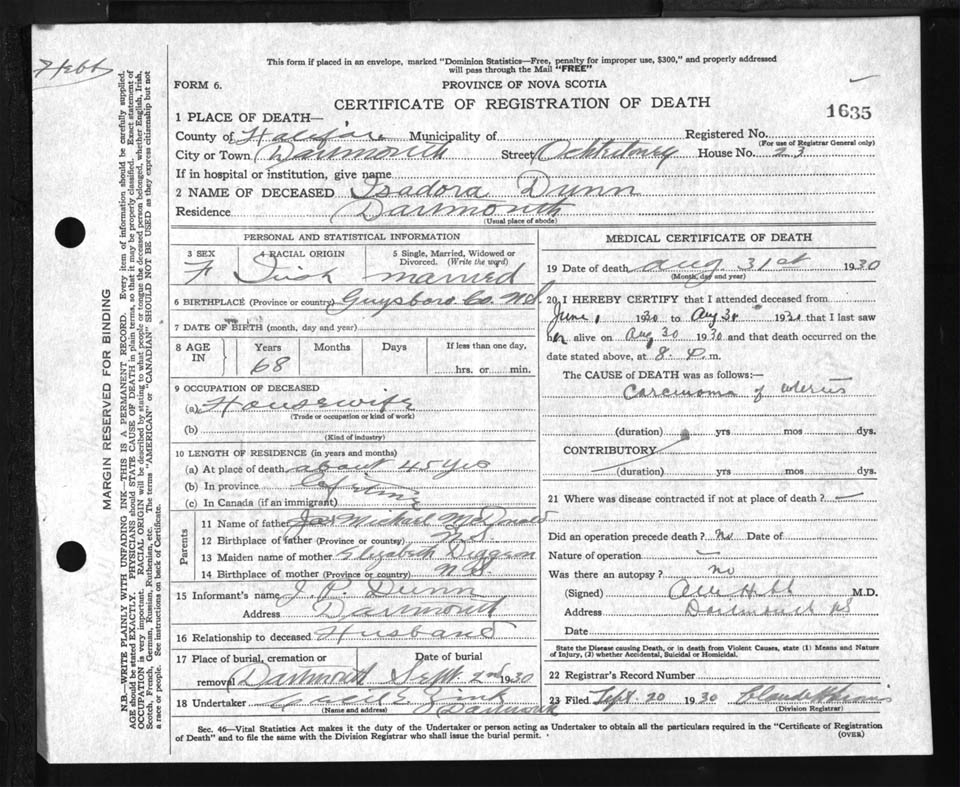 This form if placed in an envelope, marked "Dominion Statistics—Free, penalty for improper use, $300," and properly addressed
will pass through the Mail "FREE"
Hebb
FORM 6.
PROVINCE OF NOVA SCOTIA
CERTIFICATE OF REGISTRATION OF DEATH
1635
1 PLACE OF DEATH—
County of Halifax Municipality of Registered No.
(For use of Registrar General only)
City or Town Dartmouth Street Ochterloney House No. 23
If in hospital or institution, give name
2 NAME OF DECEASED Isadora Dunn
Residence Dartmouth
(Usual place of abode)
MARGIN RESERVED FOR BINDING
N.B.—WRITE PLAINLY WITH UNFADING INK—THIS IS A PERMANENT RECORD. Every item of information should be carefully supplied.
AGE should be stated EXACTLY. PHYSICIANS should STATE CAUSE OF DEATH in plain terms, so that it may be properly classified. Exact statement of
OCCUPATION is very important. RACIAL ORIGIN will be described by stating to what people or tongue the deceased person belonged, whether English, Irish,
Scotch, French, German, Russian, Ruthenian, etc. The terms "AMERICAN" or "CANADIAN" SHOULD NOT BE USED as they express citizenship but not
a race or people. See instructions on back of Certificate.
PERSONAL AND STATISTICAL INFORMATION
3 SEX
F
4 RACIAL ORIGIN
Irish
5 Single, Married, Widowed or
Divorced. (Write the word)
married
6 BIRTHPLACE (Province or country) Guysboro Co. N.S.
7 DATE OF BIRTH (month, day and year)
8 AGE IN Years Months Days If less than one day,
68 hrs. or min.
9 OCCUPATION OF DECEASED
(a) Housewife
(Trade or occupation or kind of work)
(b)
(Kind of industry)
10 LENGTH OF RESIDENCE (in years and months)
(a) At place of death about 45 yrs
(b) In province Lifetime
(c) In Canada (if an immigrant)
Parents
11 Name of father Michael McDonald
12 Birthplace of father (Province or country) N.S.
13 Maiden name of mother Elizabeth
14 Birthplace of mother (Province or country) N S
15 Informant's name J. Dunn
Address Dartmouth
16 Relationship to deceased Husband
17 Place of burial, cremation or Date of burial
removal Dartmouth Sept 2nd 1930
18 Undertaker Cecil E. Zink
(Name and address) Dartmouth
MEDICAL CERTIFICATE OF DEATH
19 Date of death Aug. 31st 1930
(Month, day and year)
20 I HEREBY CERTIFY that I attended deceased from
June 1930 to Aug 30 1930 that I last saw
her alive on Aug 30 1930 and that death occurred on the
date stated above, at 8 P. m.
The CAUSE of DEATH was as follows:—
Carcinoma of uterus
(duration) yrs mos dys.
CONTRIBUTORY
(duration) yrs mos dys.
21 Where was disease contracted if not at place of death? —
Did an operation precede death? No Date of
Nature of operation —
Was there an autopsy? no
(Signed) Hebb M.D.
Address Dartmouth NS
Date
State the Disease causing Death, or in death from Violent Causes, state (1) Means and Nature
of Injury, (2) whether Accidental, Suicidal or Homicidal.
22 Registrar's Record Number
23 Filed Sept. 20 1930
(Division Registrar)
Sec. 46—Vital Statistics Act makes it the duty of the Undertaker or person acting as Undertaker to obtain all the particulars required in the "Certificate of Registration
of Death" and to file the same with the Division Registrar who shall issue the burial permit.
(OVER)